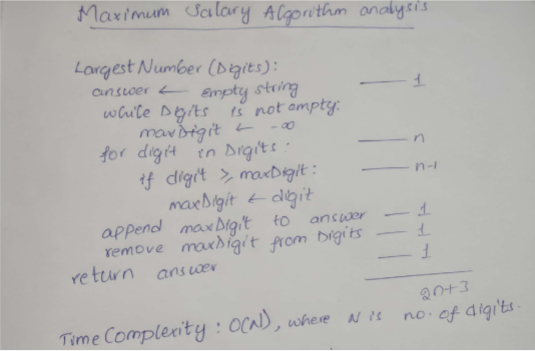 Maximum Salary Algorithm analysis
Largest Number (Digits):
answer ← empty string — 1
while Digits is not empty:
maxDigit ← -∞
for digit in Digits: — n
if digit ≥ maxDigit: — n-1
maxDigit ← digit
append maxDigit to answer — 1
remove maxDigit from Digits — 1
return answer — 1
2n+3
Time Complexity : O(N), where N is no. of digits.